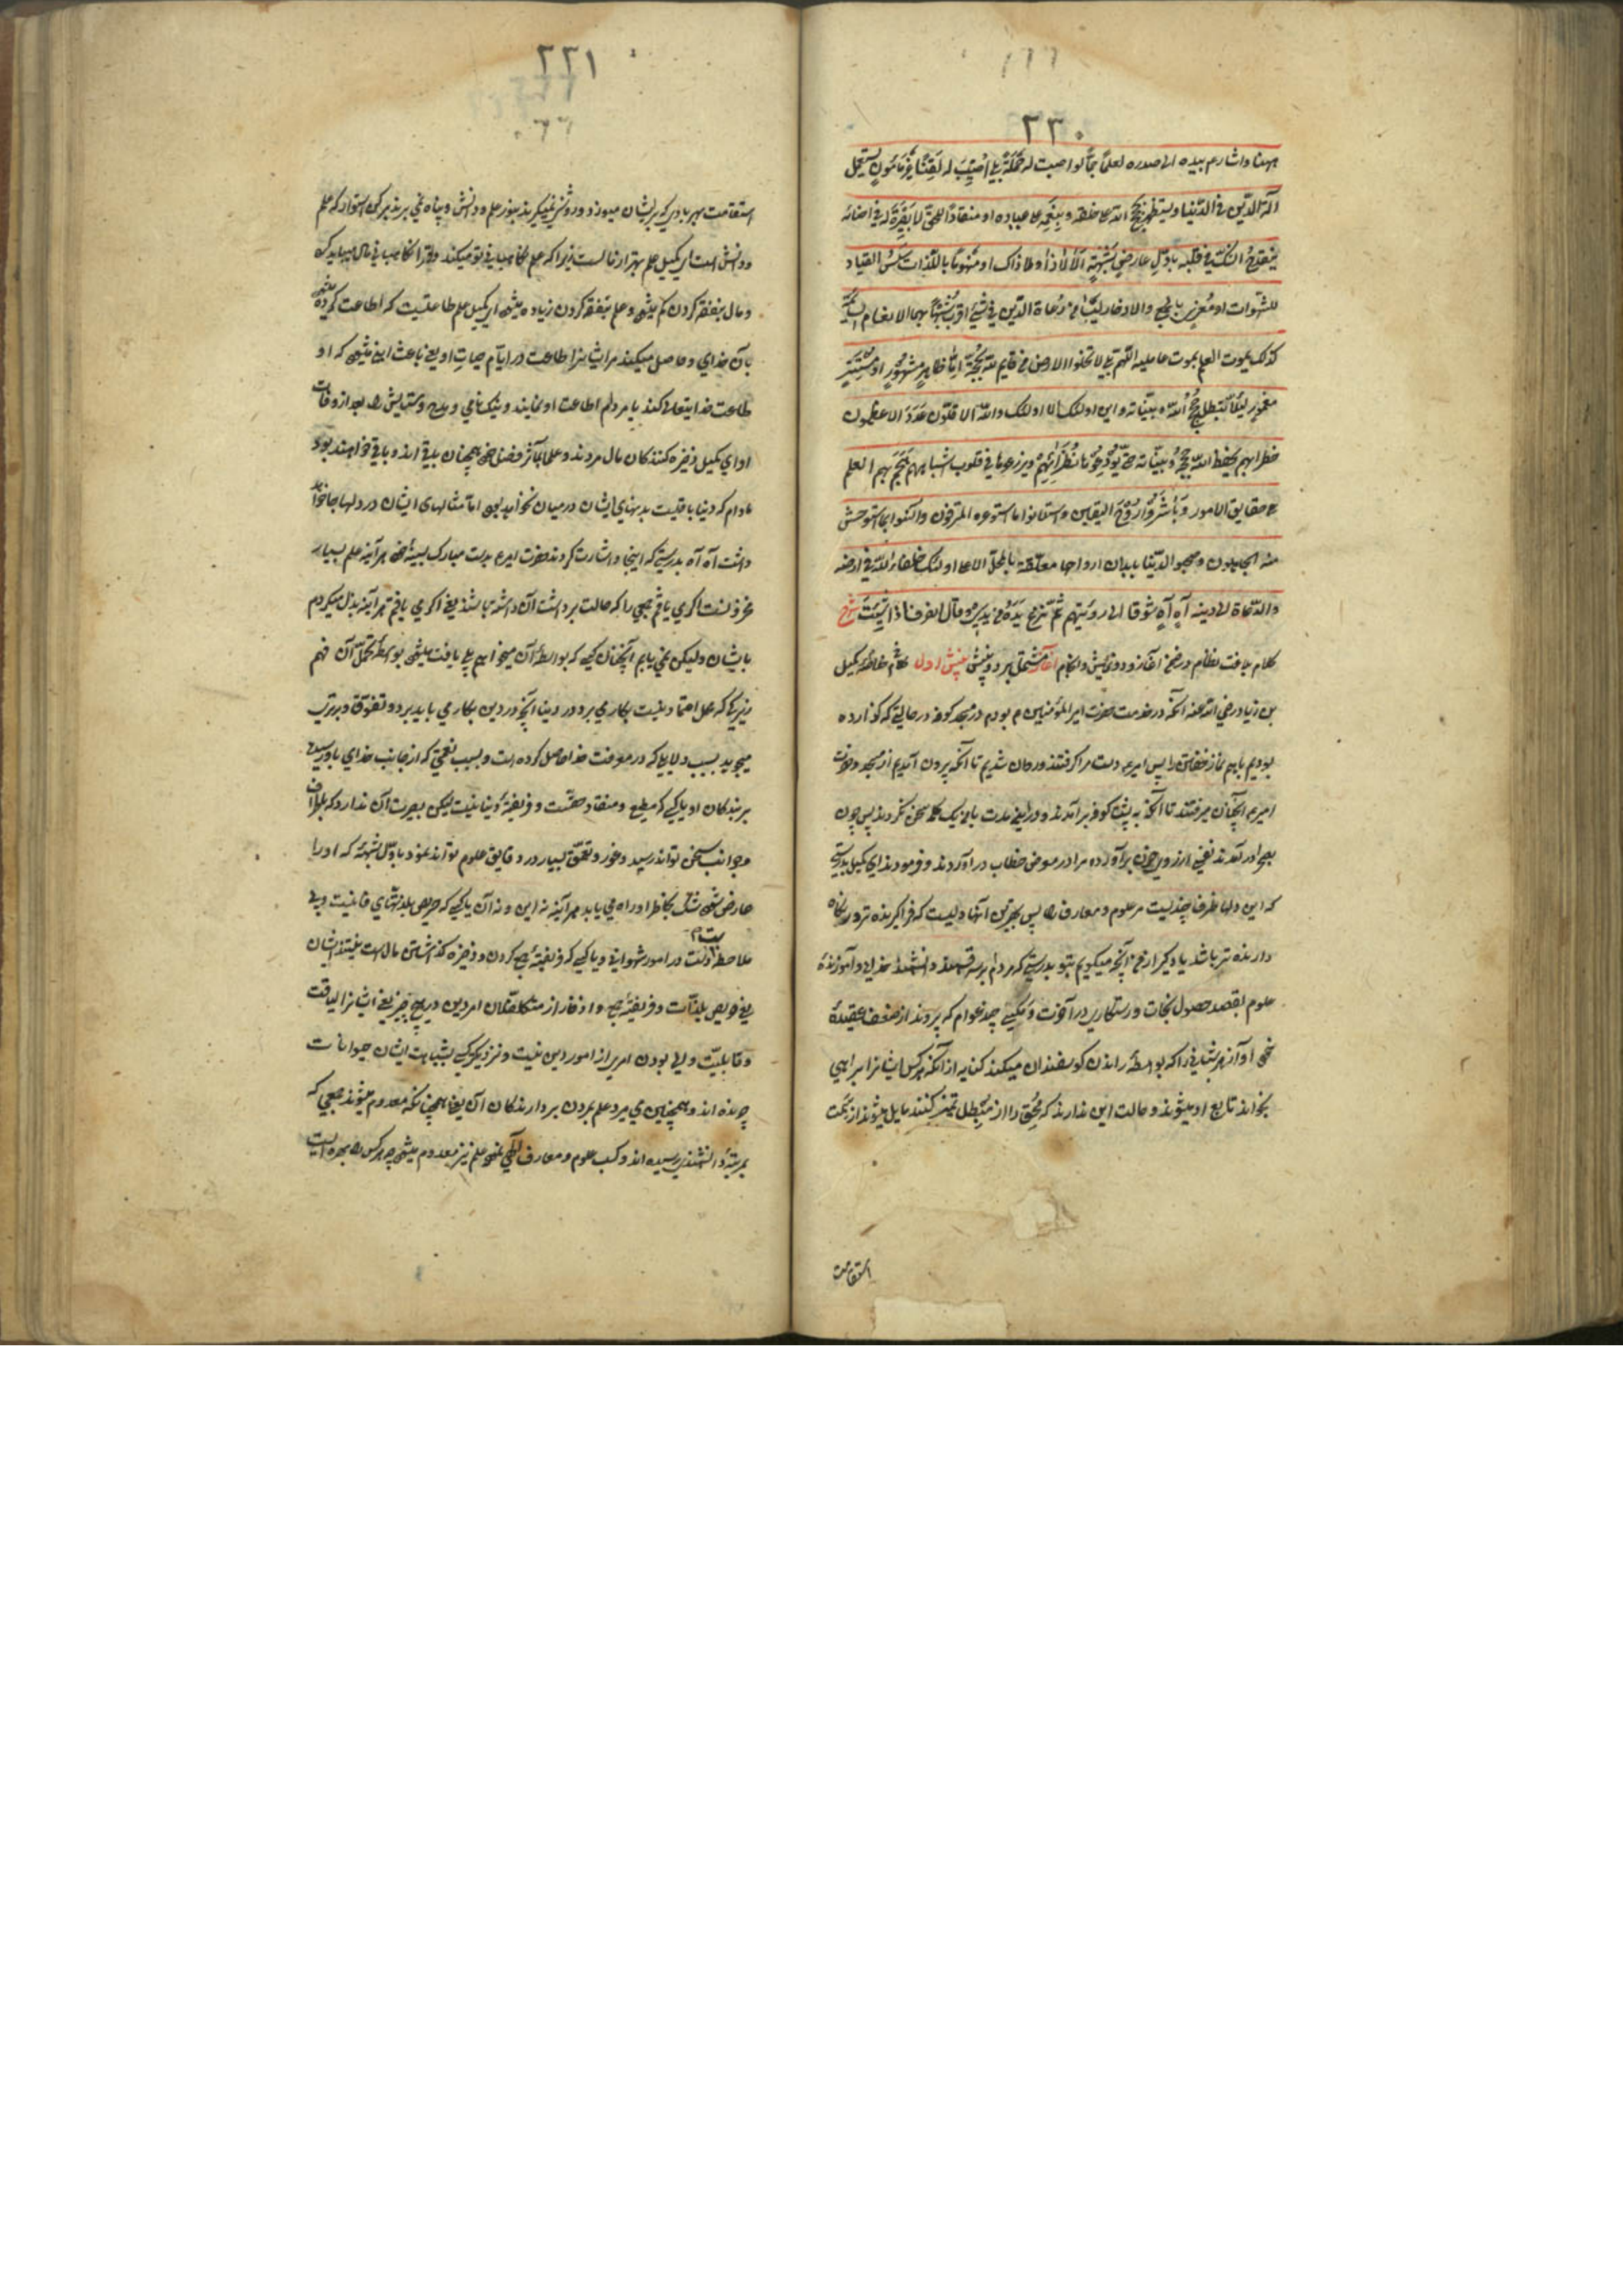 ٢٣٠
ههنا و اشار ع بیده الی صدره لعلما جما لو اصبت له حملة بلی اصیب له لقنا غیر مامون یستعمل
آلة الدین فی الدنیا و یستظهر بحجج الله علی خلقه و بنعمه علی عباده او منقادا للحق لا بصیرة له فی احنائه
ینقدح الشک فی قلبه باول عارض شبهة الا لا ذا و لا ذاک او منهوما باللذات سلس القیاد
للشهوات او مغری بالجمع و الادخار لیسا من رعاة الدین فی شیء اقرب شبها بهما الانعام السائمة
کذلک یموت العلم بموت حاملیه اللهم بلی لا تخلوا الارض من قایم لله بحجة اما ظاهر مشهور او مستتر
مغمور لئلا تبطل حجج الله و بیناته و این اولئک اولئک و الله الاقلون عددا الاعظمون
خطرا بهم یحفظ الله حججه و بیناته حتی یودعوها نظرائهم و یزرعوها فی قلوب اشباههم هجم بهم العلم
علی حقایق الامور و باشروا روح الیقین و استلانوا ما استوعره المترفون و انسوا بما استوحش
منه الجاهلون و صحبوا الدنیا بابدان ارواحها معلقة بالمحل الاعلی اولئک خلفاء الله فی ارضه
و الدعاة الی دینه آه آه شوقا الی رویتهم ثم نزع یده من یدی و قال انصرف اذا شئت شرح
کلام یافت نظام در ضمن آغاز و دو بینش و انجام آغاز مشتمل بر دو بینش بینش اول کمیل
بن زیاد رضی الله عنه آنکه در خدمت حضرت امیر المؤمنین م بودم در مسجد کوفه در حالتی که گذارده
بودیم باهم نماز خفتن را پس امیر ع دست مرا گرفتند و روان شدیم تا آنکه بیرون آمدیم از مسجد و حضرت
امیر ع آنچنان میرفتند تا آنکه به پشت کوفه بر آمدند و در این مدت با من یک کلمه سخن نکردند پس چون
بصحرا در آمدند نفسی از روی حزن بر آورده مرا در معرض خطاب در آوردند و فرمودند ای کمیل بدرستی
که این دلها ظرف چندیست مر علوم و معارف را پس بهترین آنها دلیست که فراگیرنده تر و نگاه
دارنده تر باشد یادگیر از من آنچه میگویم بتو بدرستی که مردم بر سه قسمند دانشمند خدای و آموزنده
علوم بقصد حصول نجات و رستگاری در آخرت و مگسی چند عوام که پیروند از ضعف عقیده
خود آواز هر شبانی را که بواسطه راندن گوسفندان میکند کنایه از آنکه هر کس ایشانرا براهی
بخواند تابع او میشوند و حالت این ندارند که محق را از مبطل تمیز کنند مایل میشوند از سمت
استقامت
٢٣١
استقامت بهر بادی که پریشان میوزد و روشنی نمیگیرند بنور علم و دانش و پناه نمی برند برکن استوار که علم
و دانش است ای کمیل علم بهتر از مالست زیرا که علم نگاهبانی تو میکند و تو را نگاهبانی مال میباید کرد
و مال بنفقه کردن کم میشود و علم بنفقه کردن زیاده میشود ای کمیل علم طاعتیست که اطاعت کرده میشود
بآن خدای و حاصل میکند مر ایشانرا اطاعت در ایام حیات او یعنی باعث این میشود که او
طاعت خدا یتعالی کند یا مردم اطاعت او نمایند و نیک نامی و مدح و ستایش را بعد از وفات
او ای کمیل ذخیره کنندگان مال مردند و علما بمآثر و فضل خود همچنان باقی اند و باقی خواهند بود
مادام که دنیا باقیست بدنهای ایشان در میان نخواهد بود اما مثالهای ایشان در دلها جا خواهد
داشت آه آه بدرستی که اینجا و اشارت کردند حضرت امیر ع بدست مبارک بسینه خود هر آینه علم بسیار
مخزونست اگر می یافتم جمعی را که حالت برداشت آن داشته باشند یعنی اگر می یافتم هر آینه بذل میکردم
بایشان و لیکن نمی یابم آنچنان کسی که بواسطه آن میخواهم بلی یافت میشود بواسطه تحمل آن فهم
زیرکی که محل اعتماد نیست بکار می برد در دنیا آنچه در دین بکار می باید برد و تفوق و برتری
میجوید بسبب دلایلی که در معرفت خدا حاصل کرده است و بسبب نعمتی که از جانب خدای باو رسید
بر بندگان او یا کسی که مطیع و منقاد حقست و فریفته دنیا نیست لیکن بصیرت آن ندارد که باطراف
و جوانب سخن تواند رسید و غور و تعمق بسیار در دقایق علوم تواند نمود باول شبهه که او را
عارض شود شک بخاطر او راه می یابد هر آینه نه این و نه آن یا کسی که حریص بلذتهای فانیست و بی
ملاحظه است در امور شهوانی و یا کسی که فریفته جمع کردن و ذخیره گذاشتن مال است نیستند ایشان
یعنی حریص بلذات و فریفته جمع و ادخار از متکلفلان امر دین در هیچ چیز یعنی ایشانرا لیاقت
و قابلیت والی بودن امری از امور این نیست و نزدیکتر کسی بشباهت ایشان حیوانات
چرنده اند و همچنین می میرد علم بمردن بردارندگان آن یعنی همچنانکه معدوم میشوند جمعی که
بمرتبه دانشمندی رسیده اند و کسب علوم و معارف الهی نموده علم نیز معدوم میشود چه هر کس را بهره ایست